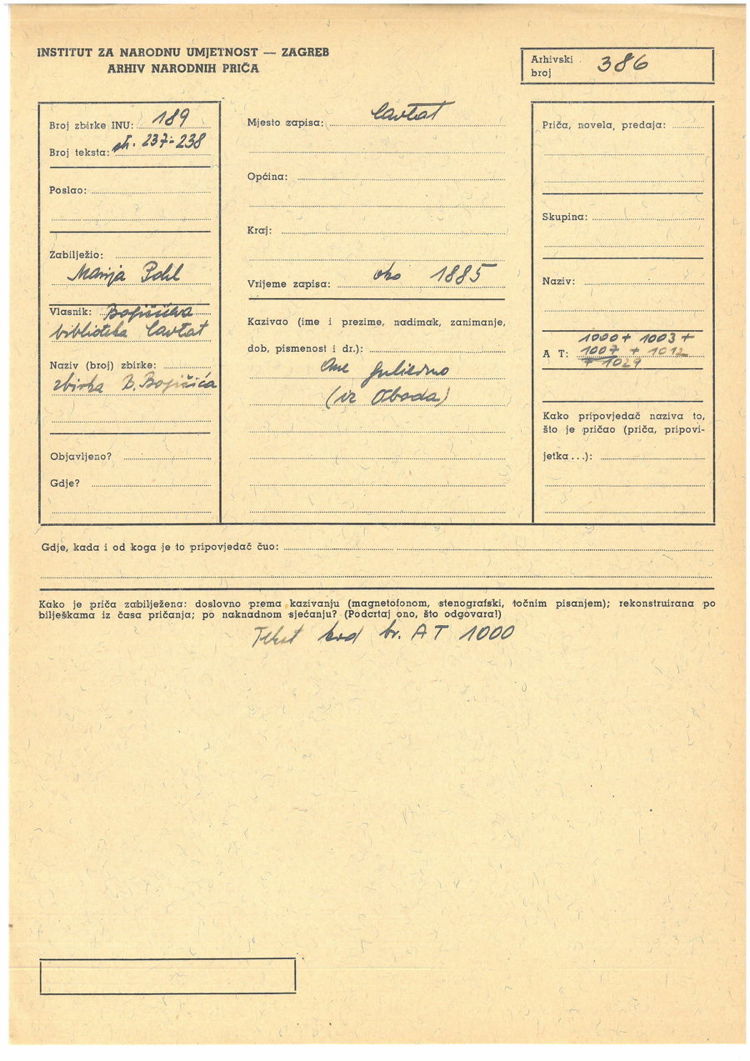 INSTITUT ZA NARODNU UMJETNOST — ZAGREB
ARHIV NARODNIH PRIČA
Arhivski broj 386
Broj zbirke INU: 189
Broj teksta: str. 237-238
Poslao:
Zabilježio:
Marija Pohl
Vlasnik: Bogišićeva
biblioteka Cavtat
Naziv (broj) zbirke:
zbirka B. Bogišića
Objavljeno?
Gdje?
Mjesto zapisa: Cavtat
Općina:
Kraj:
Vrijeme zapisa: oko 1885
Kazivao (ime i prezime, nadimak, zanimanje,
dob, pismenost i dr.):
(iz Oboda)
Priča, novela, predaja:
Skupina:
Naziv:
1000 + 1003 +
A T: 1007 + 1012
+ 1029
Kako pripovjedač naziva to,
što je pričao (priča, pripovi-
jetka...):
Gdje, kada i od koga je to pripovjedač čuo:
Kako je priča zabilježena: doslovno prema kazivanju (magnetofonom, stenografski, točnim pisanjem); rekonstruirana po
bilješkama iz časa pričanja; po naknadnom sjećanju? (Podcrtaj ono, što odgovara!)
Tekst kod br. AT 1000